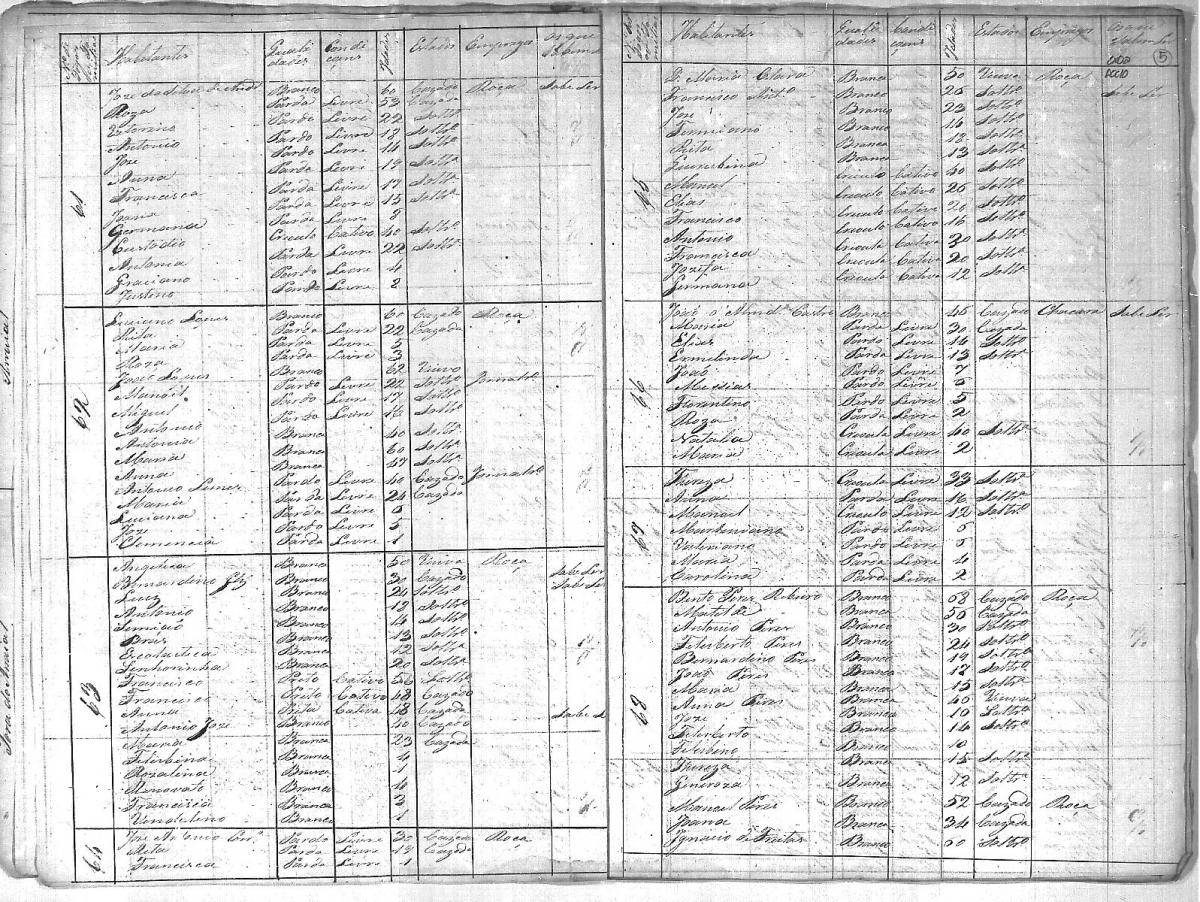 Habitantes Quali dades Condi çoens Idades Estados Empregos
61
Branco 60 Cazado Roça Sabe Ler
Roza Parda Livre 53 Cazada
Pardo Livre 22 Soltº
Antonio Pardo Livre 18 Soltº
Joze Pardo Livre 14 Soltº
Anna Parda Livre 19 Soltª
Francisca Parda Livre 17 Soltª
Joana Parda Livre 15 Soltª
Germana Parda Livre 8
Custodio Creculo Cativo 40 Soltº
Antonia Parda Livre 22 Soltª
Graciano Pardo Livre 4
Justino Pardo Livre 2
62
Luciano Lopes Branco 60 Cazado Roça
Rita Parda Livre 22 Cazada
Maria Parda Livre 5
Roza Parda Livre 3
Branco 62 Viuvo
Manoel Pardo Livre 22 Soltº Jornalrº
Miguel Pardo Livre 17 Soltº
Antonio Pardo Livre 16 Soltº
Antonia Branca 40 Soltª
Maria Branca 60 Soltª
Anna Branca 47 Soltª
Antonio Pardo Livre 40 Cazado Jornalrº
Maria Parda Livre 24 Cazada
Luciana Parda Livre 6
Joze Pardo Livre 5
Clemencia Parda Livre 1
63
Angelica Branca 50 Viuva Roça
Bernardino Branco 30 Cazado Sabe Ler
Luiz Branco 24 Soltº Sabe Ler
Antonio Branco 18 Soltº
Branco 14 Soltº
Branca 13 Soltª
Escolastica Branca 12 Soltª
Senhorinha Branca 20 Soltª
Francisco Preto Cativo 56 Soltº
Francisco Preto Cativo 48 Cazado
Anna Preta Cativa 48 Cazada
Antonio Joze Branco 40 Cazado Sabe L
Maria Branca 23 Cazada
Felisbina Branca 4
Rozalina Branca 1
Renovato Branco
Francisca Branca 3
Vendelino Branco 1
64
Joze Antonio Pardo Livre 30 Cazado Roça
Rita Parda Livre 18 Cazada
Francisca Parda Livre 1
Habitantes Quali dades Condi çoens Idades Estados Empregos
5
65
D. Maria Clara Branca 50 Viuva Roça
Francisco Antº Branco 26 Soltº Sabe Ler
Joze Branco 23 Soltº
Branco 14 Soltº
Rita Branca 18 Soltª
Branca 13 Soltª
Manoel Creculo Cativo 40 Soltº
Elias Creculo Cativo 26 Soltº
Francisco Creculo Cativo 20 Soltº
Antonio Creculo Cativo 16 Soltº
Francisca Crecula Cativa 30 Soltª
Jozefa Crecula Cativa 20 Soltª
Germana Crecula Cativa 12 Soltª
66
Castro Branco 45 Cazado Chacara Sabe Ler
Maria Parda Livre 30 Cazada
Elias Pardo Livre 14 Soltº
Ermelinda Parda Livre 13 Soltª
João Pardo Livre 7
Messias Pardo Livre 6
Florentino Pardo Livre 5
Roza Parda Livre 2
Natalia Crecula Livre 40 Soltª
Maria Crecula Livre 2
67
Thereza Crecula Livre 33 Soltª
Anna Parda Livre 16 Soltª
Manoel Creculo Livre 12 Soltº
Martiniano Pardo Livre 6
Valeriano Pardo Livre 5
Maria Parda Livre 4
Carolina Parda Livre 2
68
Bento Pires Ribeiro Branco 68 Cazado Roça
Matilde Branca 56 Cazada
Antonio Pires Branco 30 Soltº
Felisberto Pires Branco 24 Soltº
Bernardino Pires Branco 19 Soltº
João Pires Branco 17 Soltº
Maria Branca 15 Soltª
Anna Pires Branca 40 Viuva
Joze Branco 18 Soltº
Felisberto Branco 14 Soltº
Felisbino Branco 10
Thereza Branca 15 Soltª
Generoza Branca 12 Soltª
Manoel Pires Branco 52 Cazado Roça
Joana Branca 34 Cazada
Ignacio de Freitas Branco 60 Soltº